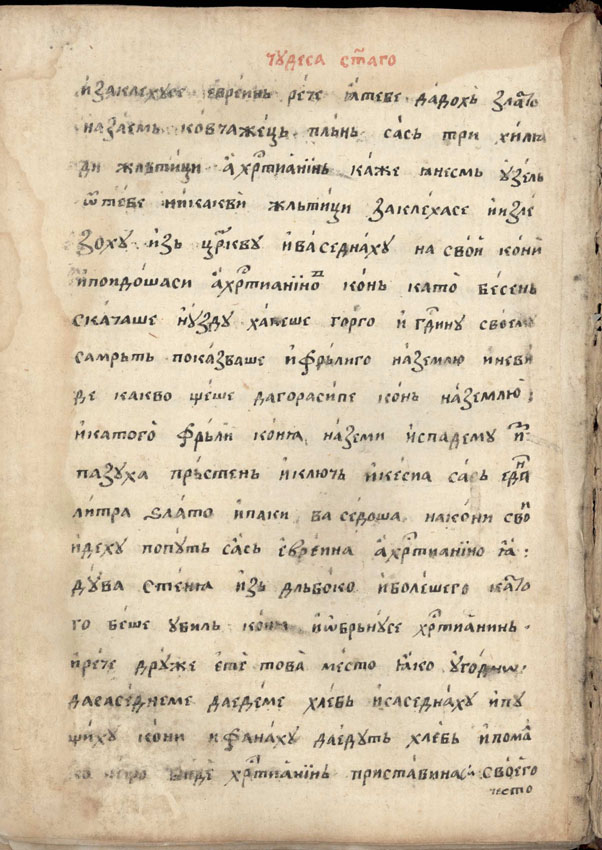 чꙋдеса ст҃аго
и҆заклехꙋсе е҆вре́инь ре́че ꙗ҆тебе да́дохь зла́то
на зае́мь ко́вчаже́ць пль́нь са́сь три хилꙗ
ди жль́тици а҆хр҃тиꙗ́нінь ка́же ꙗ҆несмь ꙋ҆зель
ѿте́бе никакви́ жль́тици заклеха́се и҆изле
зохꙋ и҆зь цр҃квꙋ и҆ва́седна́хꙋ на свои́ кони́
и҆поидо́шаси а҆хр҃тиꙗ́нино ко́нь като̀ бе́сень
ска́чаше и҆ꙋздꙋ ха́пеше го́рго и҆ гр҃инꙋ своемꙋ
самрь́ть пока́зꙋваше и҆фрь́лиго на́землю и҆неви
де какво ще́ше дагора́сипе ко́нь на́землю̀
и҆катого̀ фрь́ли ко́нꙗ на́земи и҆спа́демꙋ и҆
па́зꙋха прь́стень и҆клю́чь и҆ке́сиа са́сь е҆ди́
ли́тра ѕла́то и҆па́ки ва се́доша на ко́ни сво
и҆де́хꙋ попꙋ́ть са́сь е҆вре́ина а҆хр҃тиꙗ́нино ꙗ҆
дꙋ́ва сте́нꙗ и҆зь дльбо́ко и҆боле́шего ка́то
го бе́ше ꙋ҆биль ко́нꙗ и҆ѡбрь́нꙋсе хр҃тиꙗ́нинь
и҆ре́че дрꙋ́же е҆те това̀ ме́сто ꙗ҆ко ꙋ҆го́дно
да васе́днеме да е҆де́ме хле́бь и҆са́седна́хꙋ и҆пꙋ
щи́хꙋ ко́ни и҆фа́нахꙋ да е҆дꙋть хле́бь и҆пома
хр҃тиꙗ́нінь приста́вина своего
често